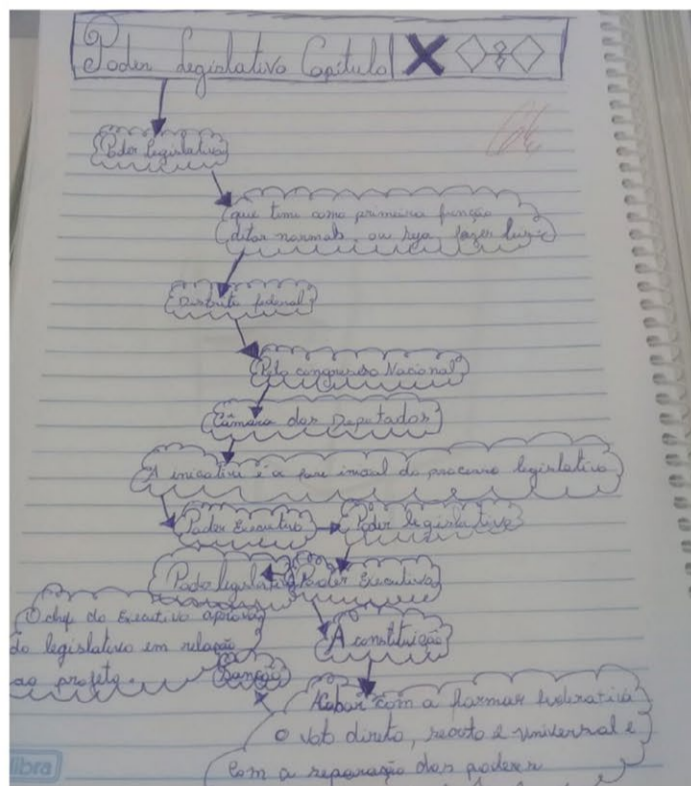 Poder Legislativo Capítulo X
Poder legislativo
que tem como primeira função
ditar normals, ou seja, fazer
Distrito federal
Pelo congresso Nacional
Câmara dos Deputados
A iniciativa é a fase inicial do processo legislativo
Poder Executivo
Poder legislativo
Poder legislativo
Poder Executivo
O chefe do Executivo aprova
do legislativo em relação
ao projeto.
A constituição
Sanção
Acabar com a
o voto direto, secreto e universal e
Com a separação dos poderes
libra